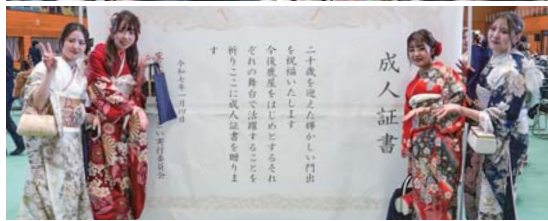 成人証書
二十歳を迎えた輝かしい門出
を祝福いたします
今後鹿屋をはじめとするそれ
ぞれの舞台で活躍することを
祈りここに成人証書を贈りま
す
令和七年一月四日
い実行委員会